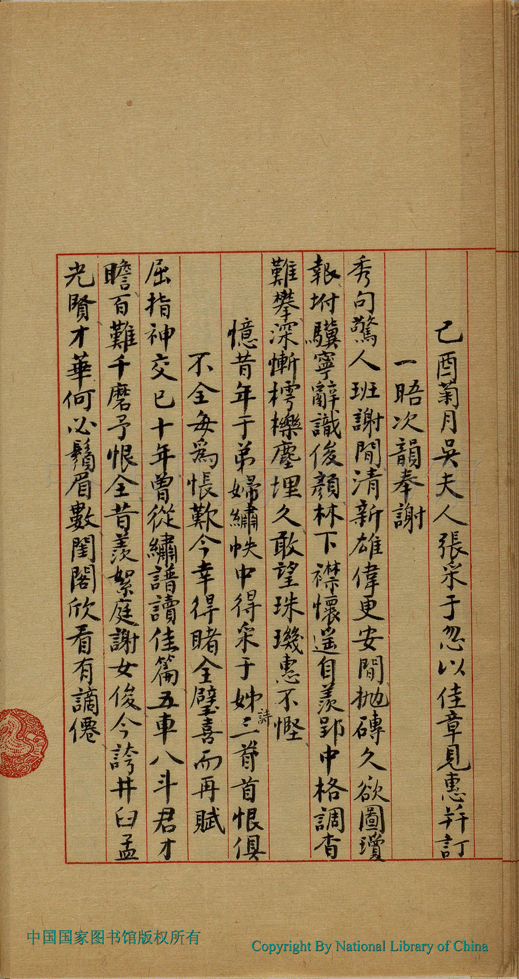 己酉菊月吳夫人張采于忽以佳章見惠并訂
一晤次韻奉謝
秀句驚人班謝間清新雄偉更安閒拋磚久欲圖瓊
報坿驥寧辭識俊顏林下襟懷遥自羨郢中格調杳
難攀深慚樗櫟塵埋久敢望珠璣惠不慳
憶昔年于弟婦繡帙中得采于姊詩二首恨俱
不全每為悵歎今幸得睹全璧喜而再賦
屈指神交已十年曾從繡譜讀佳篇五車八斗君才
瞻百難千磨予恨全昔羨絮庭謝女俊今誇井臼孟
光賢才華何必鬚眉數閨閣欣看有謫僊
中国国家图书馆版权所有
Copyright By National Library of China